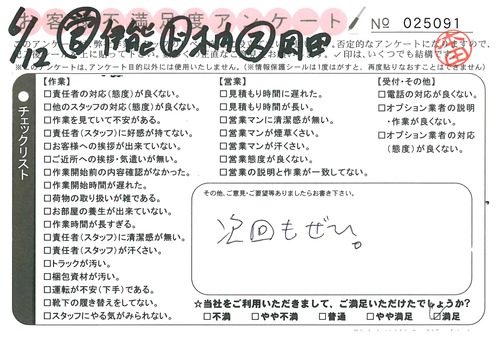 お客様不満足度アンケート
№ 025091
※このアンケートは、アンケート目的以外には使用いたしません。(※情報保護シールは1度はがすと、再度貼りなおすことはできません)
チェックリスト
【作業】
□責任者の対応(態度)が良くない。
□他のスタッフの対応(態度)が良くない。
□作業を見ていて不安がある。
□責任者(スタッフ)に好感が持てない。
□お客様への挨拶が出来ていない。
□ご近所への挨拶・気遣いが無い。
□作業開始前の内容確認がなかった。
□作業開始時間が遅れた。
□荷物の取り扱いが雑である。
□お部屋の養生が出来ていない。
□作業時間が長すぎる。
□責任者(スタッフ)に清潔感が無い。
□責任者(スタッフ)が汗くさい。
□トラックが汚い。
□梱包資材が汚い。
□運転が不安(下手)である。
□靴下の履き替えをしてない。
□スタッフにやる気がみられない。
【営業】
□見積もり時間に遅れた。
□見積もり時間が長い。
□営業マンに清潔感が無い。
□営業マンが煙草くさい。
□営業マンが汗くさい。
□営業態度が良くない。
□営業の説明と作業が一致してない。
【受付・その他】
□電話の対応が良くない。
□オプション業者の説明
・作業が良くない。
□オプション業者の対応
(態度)が良くない。
その他、ご意見・ご要望等ありましたらお書き下さい。
次回もぜひ。
☆当社をご利用いただきまして、ご満足いただけたでしょうか?
□不満 □やや不満 □普通 □やや満足 □満足